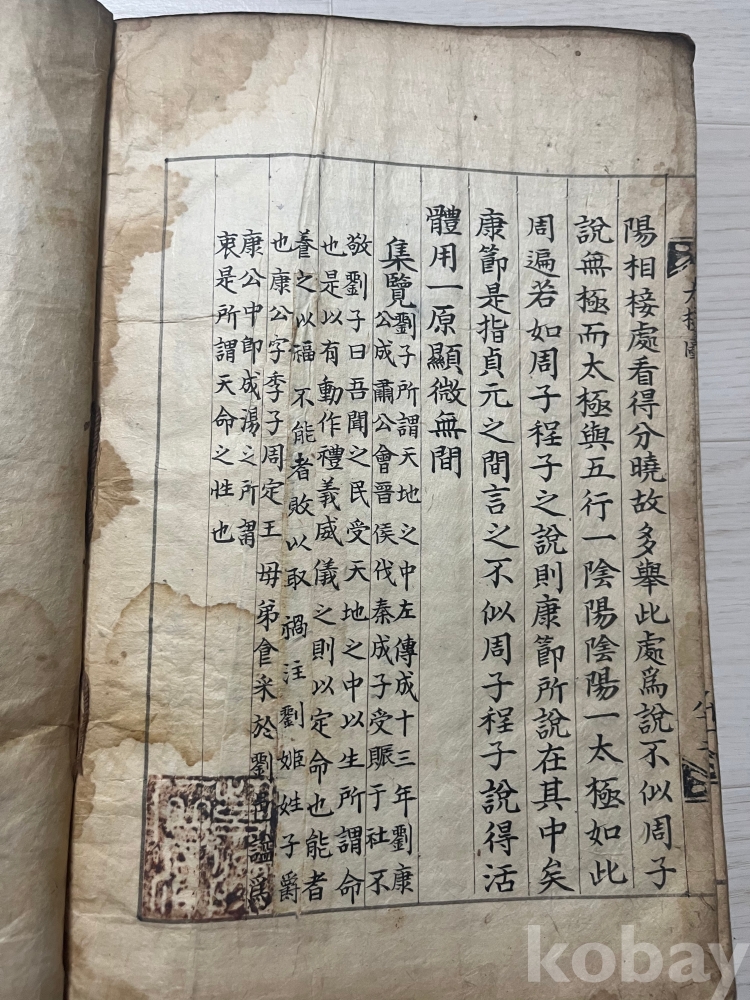 陽相接處看得分曉故多舉此處爲說不似周子
說無極而太極與五行一陰陽陰陽一太極如此
周遍若如周子程子之說則康節所說在其中矣
康節是指貞元之間言之不似周子程子說得活
體用一原顯微無間
集覽劉子所謂天地之中左傳成十三年劉康
公成肅公會晉侯代秦成子受賑于社不
敬劉子曰吾聞之民受天地之中以生所謂命
也是以有動作禮義威儀之則以定命也能者
養之以福不能者敗以取禍注劉姬姓子爵
也康公字季子周定王母弟食采於劉謚爲
康公中卽成湯之所謂
衷是所謂天命之性也
太極圖
kobay